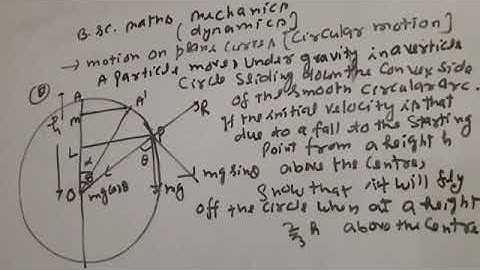 B.Sc. maths (mechanics
(dynamics)
→ motion on plane curves [Circular motion]
A particle moves under gravity in a vertical
Circle Sliding down the Convex side
of the smooth circular arc.
If the initial velocity is that
due to a fall to the starting
Point from a height h
above the Centre,
Show that it will fly
off the Circle when at a height
2/3 h above the Centre
Q
A
A'
M
h
L
P
R
α
θ
θ
O
mg cosθ
mg
mg sinθ